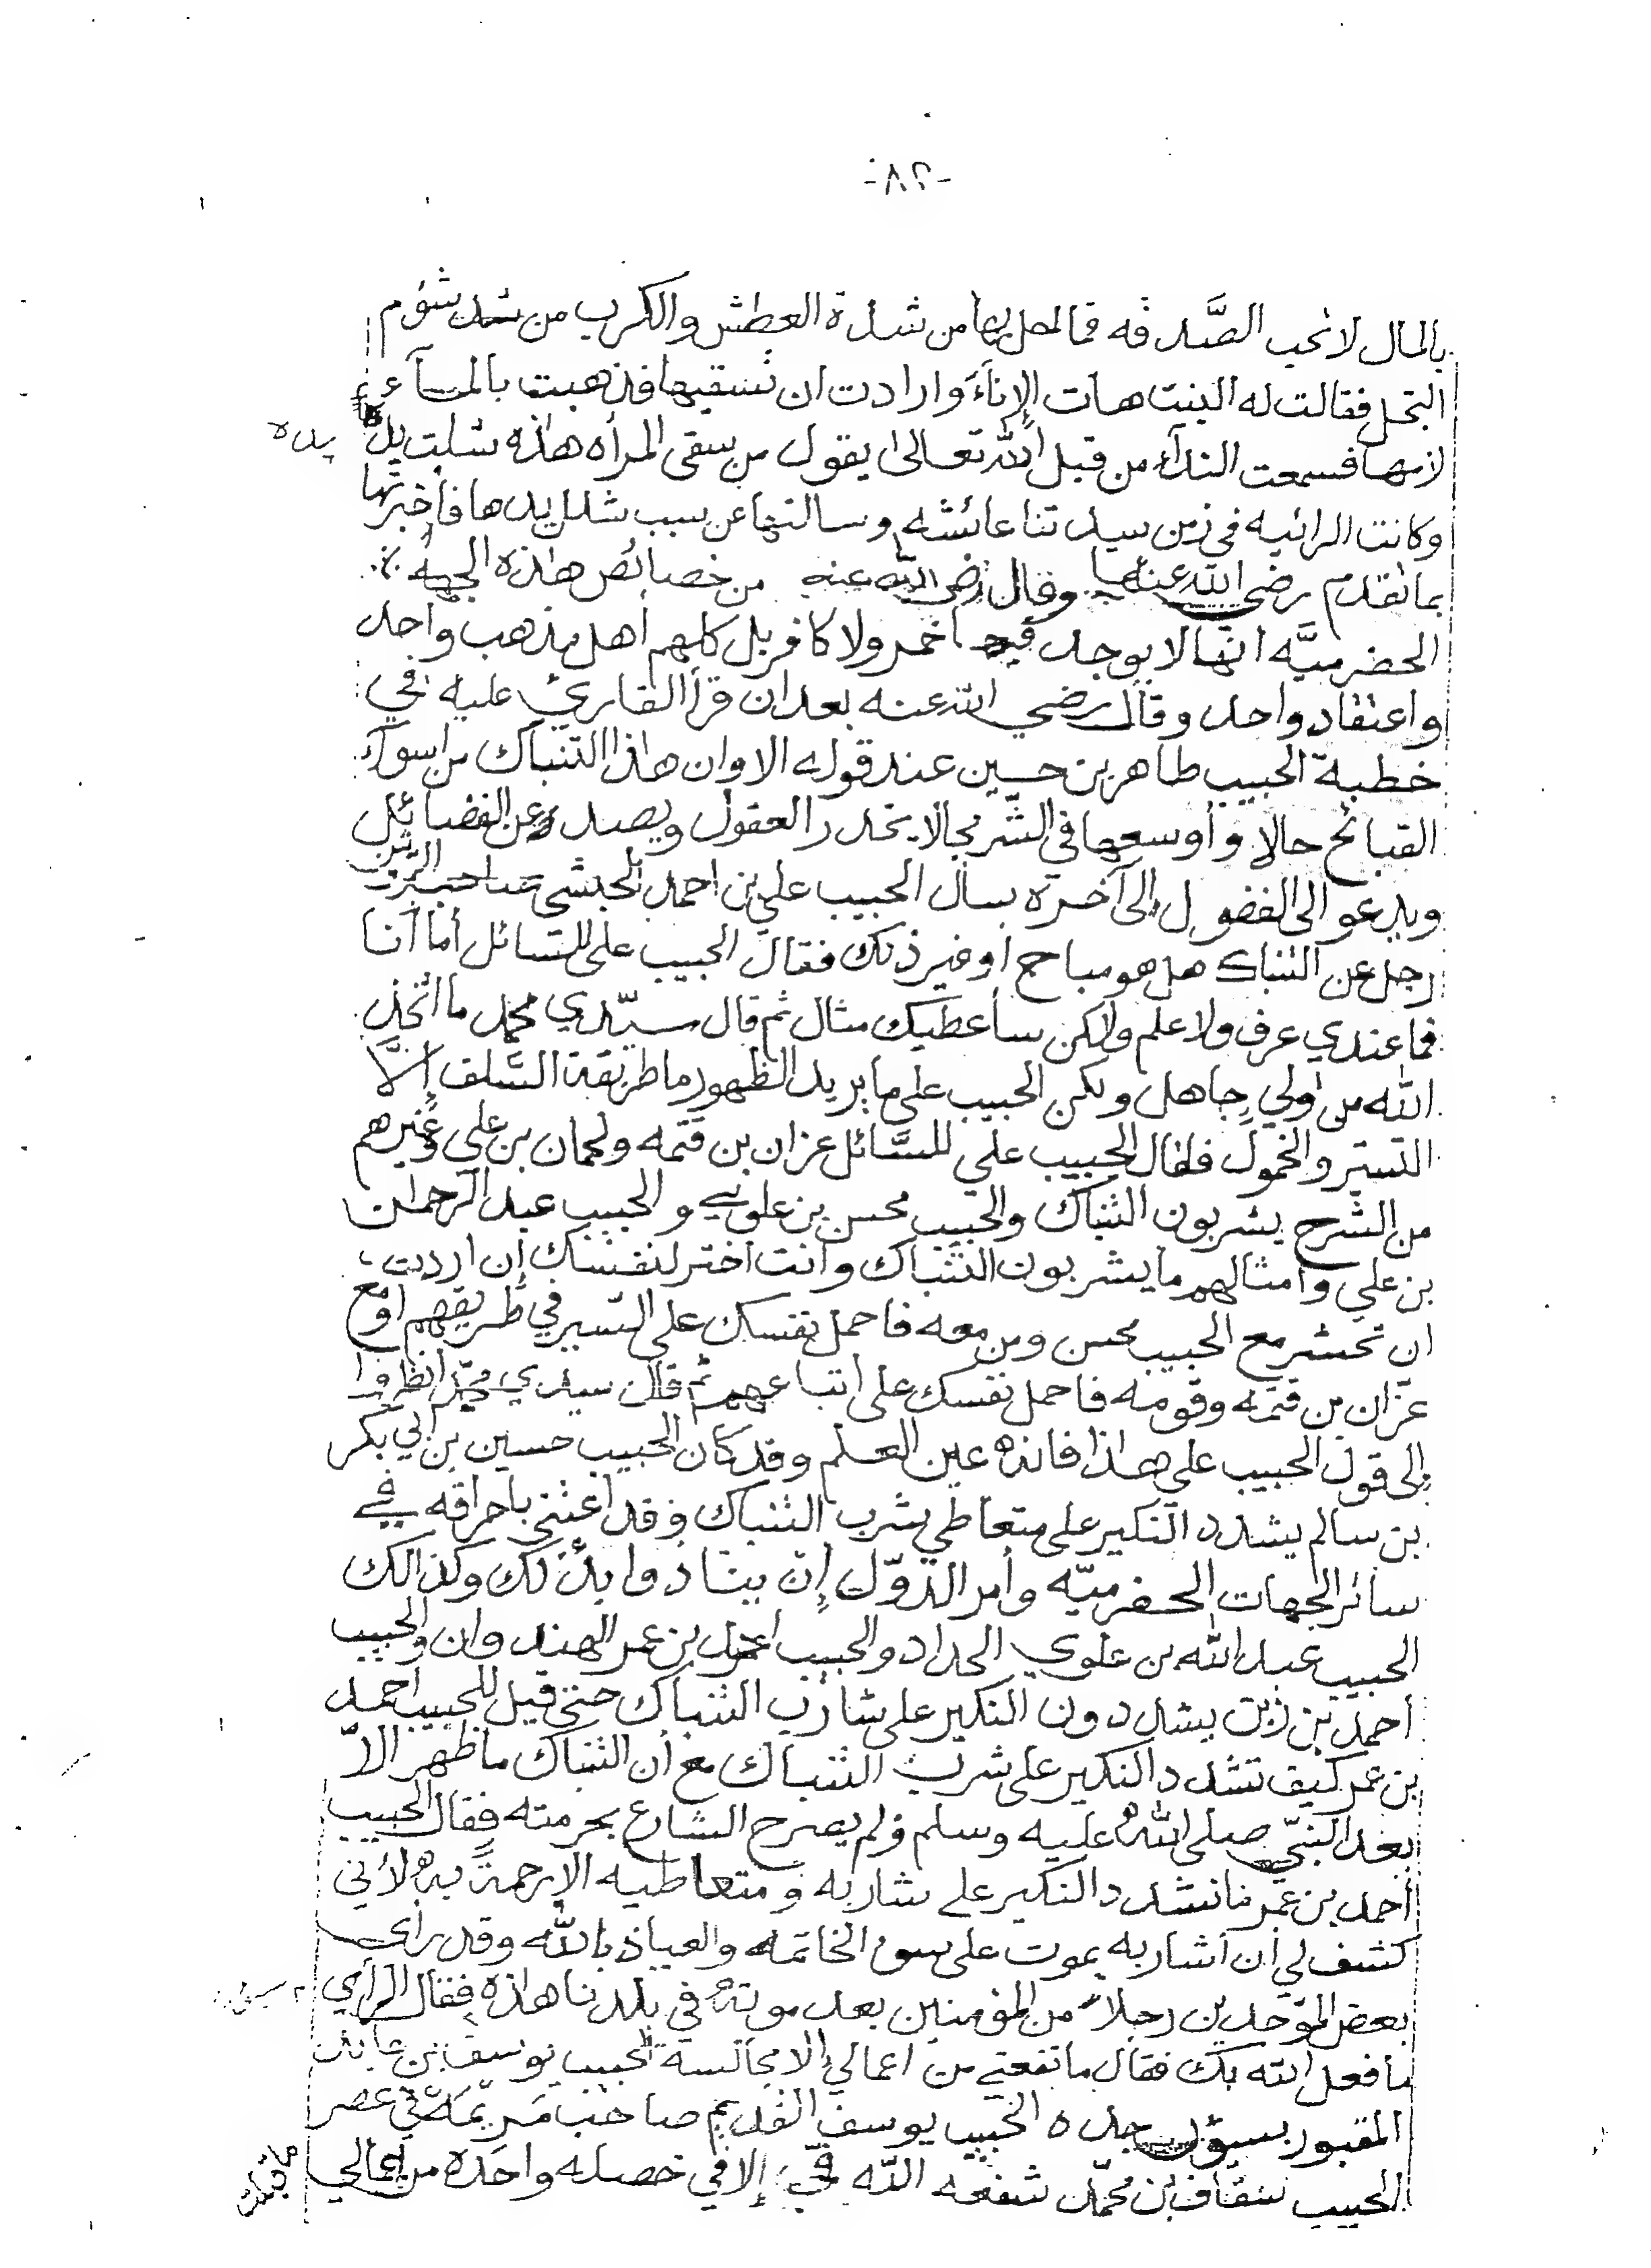 -٨٢-
بالمال لا تحب الصَّدقه فما لمحل بها من شدة العطش والكرب من شؤم
البخل فقالت له البنت هات الإناءَ وارادت ان تسقيها فذهبت بالمآء
لامها فسمعت الندآء من قبل الله تعالى يقول من سقى المرأه هاذه شلت يده
يده
وكانت الرائيه في زمن سيدتنا عائشه وسالتها عن سبب شلل يدها فأخبرتها
بما تقدم رضي الله عنها وقال رضي الله عنه من خصائص هاذه الجهه
الحضرميَّه انها لا يوجد فيها خمر ولا كافر بل كلهم اهل مذهب واحد
واعتقاد واحد وقال رضي الله عنه بعد ان قرأ القاريء عليه في
خطبة الحبيب طاهر بن حسين عند قوله الا وان هاذا التنباك من اسوء
القبائح حالا وأوسعها في الشّر مجالا يخدر العقول ويصد عن الفضائل
ويدعو الى الفضول إلى آخره سأل الحبيب علي بن احمد الحبشي صاحب
رجل عن التنباك هل هو مباح او غير ذلك فقال الحبيب على للسّائل أما أنا
فما عندي عرف ولا علم ولاكن سأعطيك مثال ثم قال سيّدي محمد ما اتخذ
الله من وليِ جاهل ولكن الحبيب علي ما يريد الظهور ما طريقة السَّلف إلَّا
التستر والخمول فقال الحبيب علي للسَّائل عزان بن قتمه ولحمان بن علي وغيرهم
من الشّرح يشربون التنباك والحبيب محسن بن علوي والحبيب عبد الرحمان
بن علي وأمثالهم ما يشربون التنباك وانت اختر لنفسك إن اردت
ان تحشر مع الحبيب محسن ومن معه فاحمل نفسك على السّير في طريقهم او مع
عزّان بن قتمه وقومه فاحمل نفسك على اتباعهم ثم قال سيدي محمّد انظروا
إلى قول الحبيب علي هاذا فانه عين العلم وقد كان الحبيب حسين بن ابي بكر
بن سالم يشدد النكير على متعاطي شرب التنباك وقد اعتنى باحراقه في
سائر الجهات الحضرميّه وأمر الدوّل إن ينادوا بذلك وكذالك
الحبيب عبد الله بن علوي الحداد والحبيب احمد بن عمر الهندوان والحبيب
أحمد بن زين يشددون النكير على شارب التنباك حتى قيل للحبيب احمد
بن عمر كيف تشدد النكير على شرب التنباك مع أن التنباك ما ظهر الاّ
بعد النبيّ صلى الله عليه وسلم ولم يصرح الشارع بحرمته فقال الحبيب
أحمد بن عمر ما نشدد النكير على شاربه ومتعاطيه الا رحمةً به لأني
كشف لي أن شاربه يموت على سوء الخاتمه والعياذ بالله وقد رأى
بعض الموّحدين رجلاً من المؤمنين بعد موته في بلدنا هاذه فقال الرأي
ما فعل الله بك فقال ما نفعني من اعمالي إلا مجالسة الحبيب يوسف بن عابد
المقبور بسيؤن جده الحبيب يوسف القديم صاحب مَريَمَه في عصر
الحبيب سقاف بن محمّد شفعه الله فيّ إلا في خصله واحده من اعمالي
ما قبلت